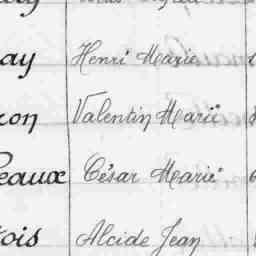 ay Henri Marie
ron Valentin Marie
eaux César Marie
tois Alcide Jean